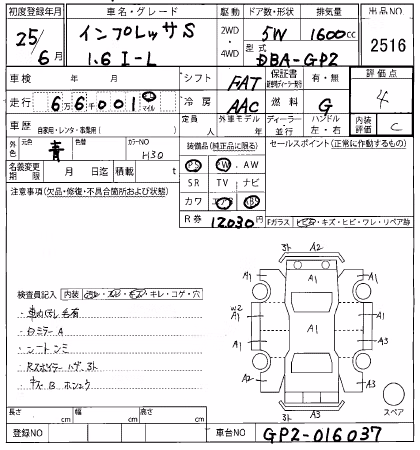 初度登録年月 車名・グレード 駆動 ドア数・形状 排気量 出品NO
25/6月 インプレッサS 2WD・4WD 5W 1600cc 2516
1.6 i-L 型式 DBA-GP2
車検 年 月 シフト FAT 保証書 有・無 評価点
走行 6万6千001 マイル 冷房 AAC 燃料 G 4
車歴 自家用・レンタ・事業用( ) 定員 人 外車モデル 年 ディーラー・並行 ハンドル 左・右 内装評価 C
外色 元色 青 色替 カラーNO H30 装備品(純正品に限る) セールスポイント(正常に作動するもの)
PS PW AW
名義変更期限 月 日迄 積載 t SR TV ナビ
注意事項(欠品・修復・不具合箇所および状態) カワ
R券 12,030円 Fガラス トビ石・キズ・ヒビ・ワレ・リペア跡
3ト A2
A1 A1 A1
検査員記入 内装 汚レ・スレ・キズ・キレ・コゲ・穴
W2
A1 A1 A1 A3
・Dミラー A
・シートシミ
・Rスポイラー ハゲ 3ト
・キズ B ホシュウ
A2 A1 A3
3ト A3 スペア
長さ cm 幅 cm 高さ cm
登録NO 車台NO GP2-016037